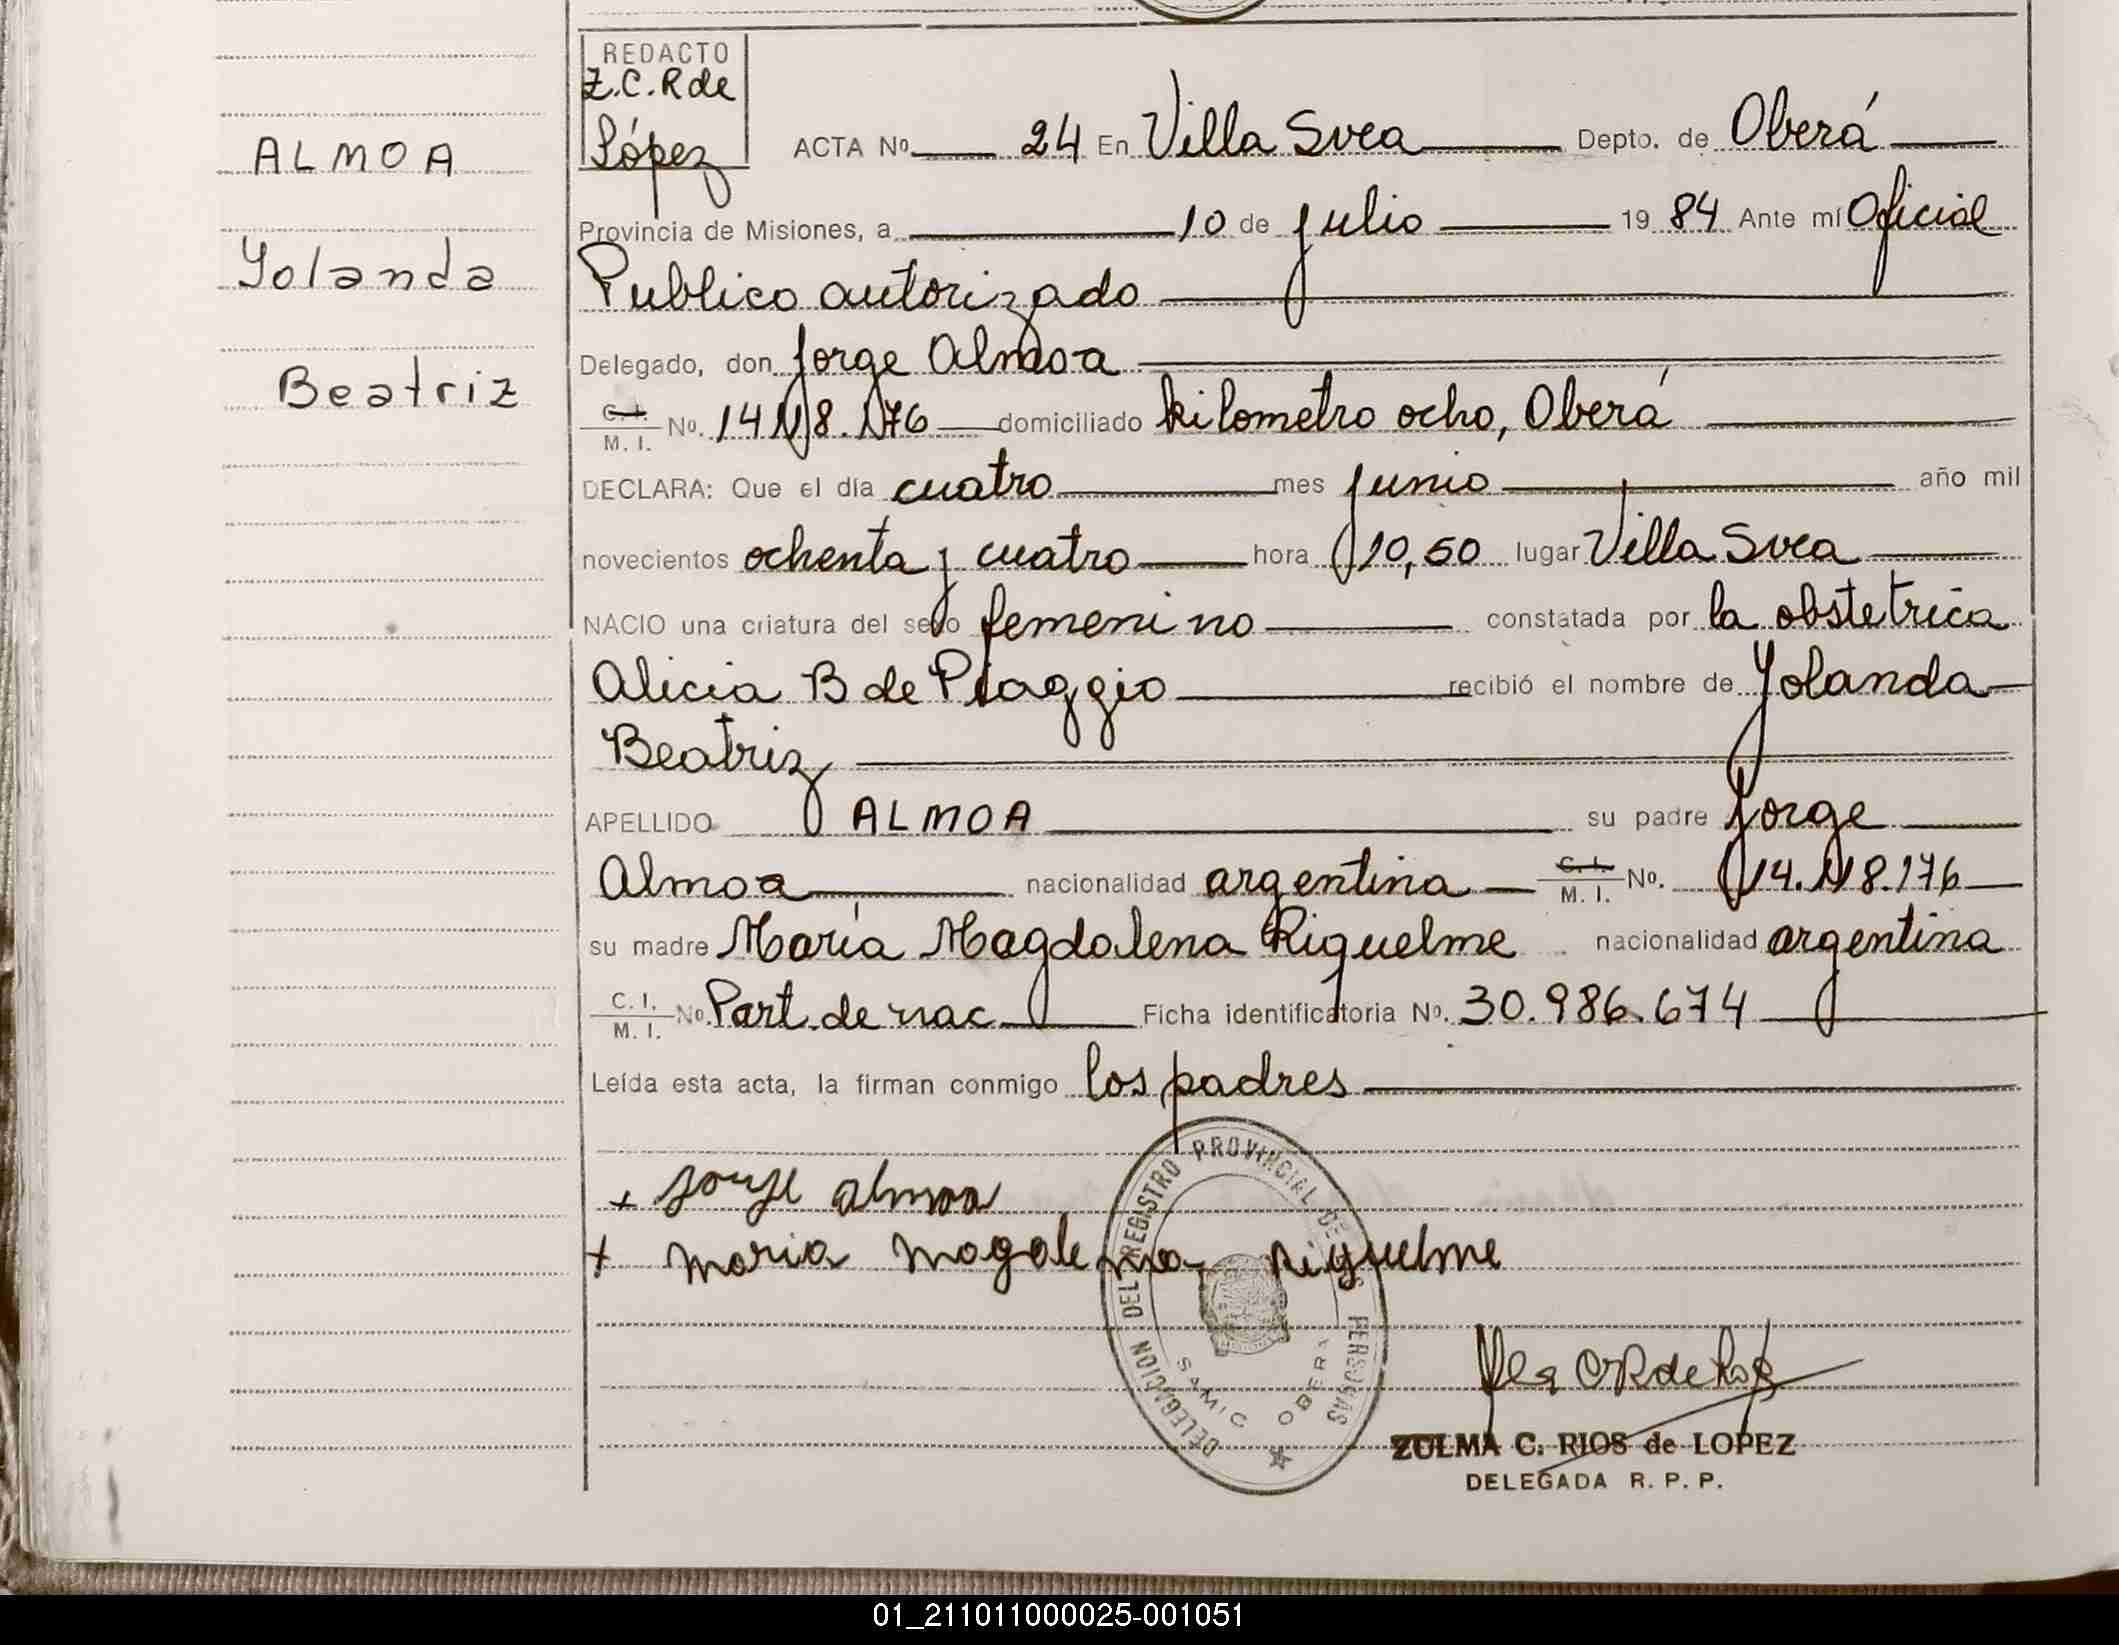 ALMOA
Yolanda
Beatriz
REDACTO
Z.C.R de
López
ACTA Nº 24 En Villa Svea Depto. de Oberá
Provincia de Misiones, a 10 de julio 1984 Ante mí Oficial
Publico autorizado
Delegado, don Jorge Almoa
C. I. / M. I. No. 14.118.176 domiciliado kilometro ocho, Oberá
DECLARA: Que el día cuatro mes junio año mil
novecientos ochenta y cuatro hora 10,50 lugar Villa Svea
NACIO una criatura del sexo femenino constatada por la obstetrica
Alicia B de Piaggio recibió el nombre de Yolanda
Beatriz
APELLIDO ALMOA su padre Jorge
Almoa nacionalidad argentina C. I. / M. I. No. 14.118.176
su madre María Magdalena Riquelme nacionalidad argentina
C. I. / M. I. No. Part. de nac Ficha identificatoria No. 30.986.674
Leída esta acta, la firman conmigo los padres
+ Jorje almoa
+ maria magalena Riquelme
DELEGACION DEL REGISTRO PROVINCIAL DE LAS PERSONAS
SAMIC OBERA
ZULMA C. RIOS de LOPEZ
DELEGADA R. P. P.
01_211011000025-001051